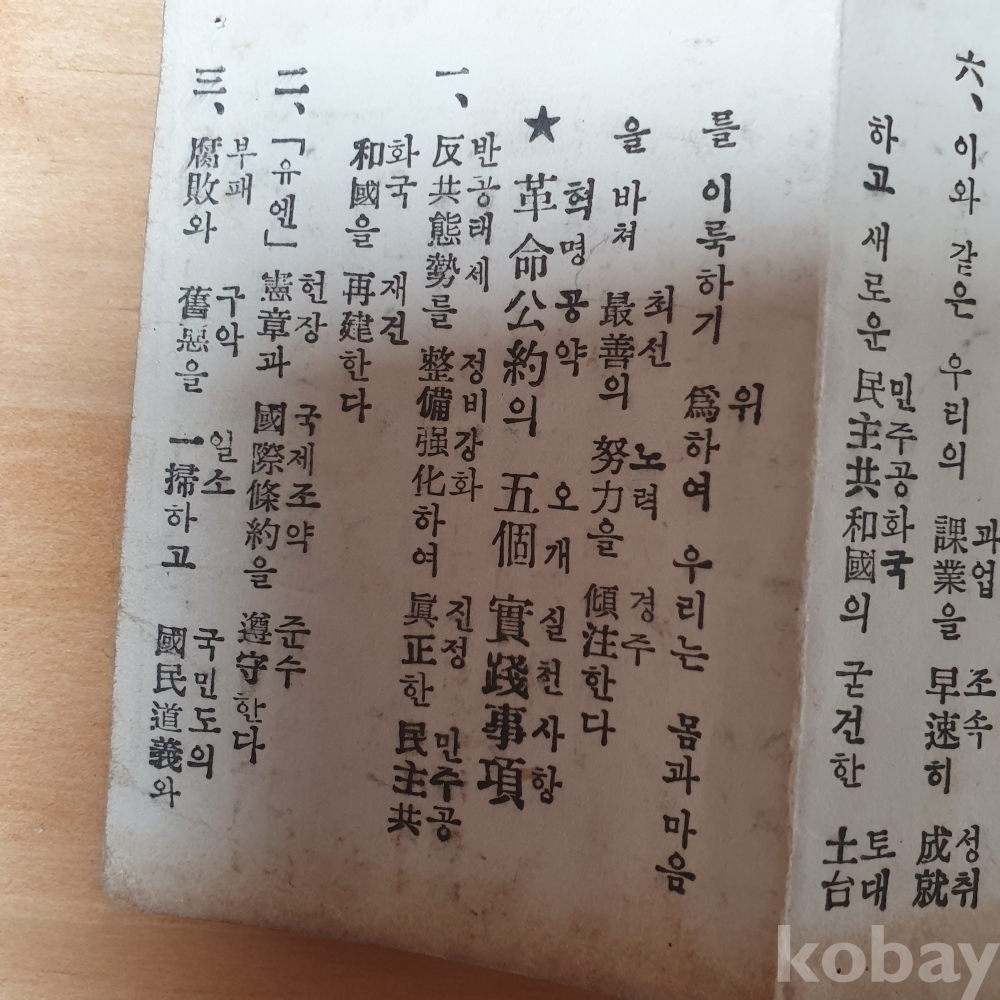 과업 조속 성취
六、이와 같은 우리의 課業을 早速히 成就
민주공화국 토대
하고 새로운 民主共和國의 굳건한 土台
위
를 이룩하기 爲하여 우리는 몸과 마음
최선 노력 경주
을 바쳐 最善의 努力을 傾注한다
혁명공약 오개 실천사항
★ 革命公約의 五個 實踐事項
반공태세 정비강화 진정 민주공
一、反共態勢를 整備强化하여 眞正한 民主共
화국 재견
和國을 再建한다
헌장 국제조약 준수
二、「유엔」 憲章과 國際條約을 遵守한다
부패 구악 일소 국민도의
三、腐敗와 舊惡을 一掃하고 國民道義와
kobay